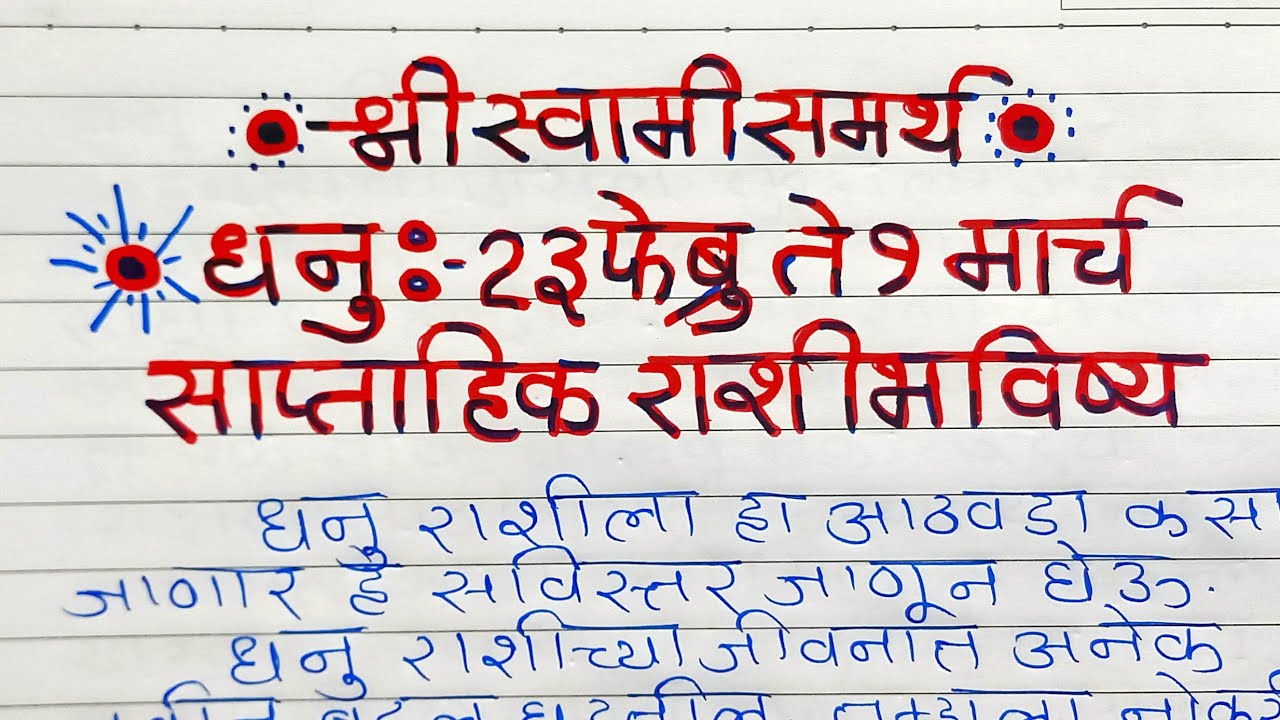 श्री स्वामी समर्थ
धनु :- २३ फेब्रु ते १ मार्च
साप्ताहिक राशीभविष्य
धनु राशीला हा आठवडा कसा
जाणार हे सविस्तर जाणून घेऊ.
धनु राशीच्या जीवनात अनेक
नवीन बदल घडतील. तुम्हाला नोकरी